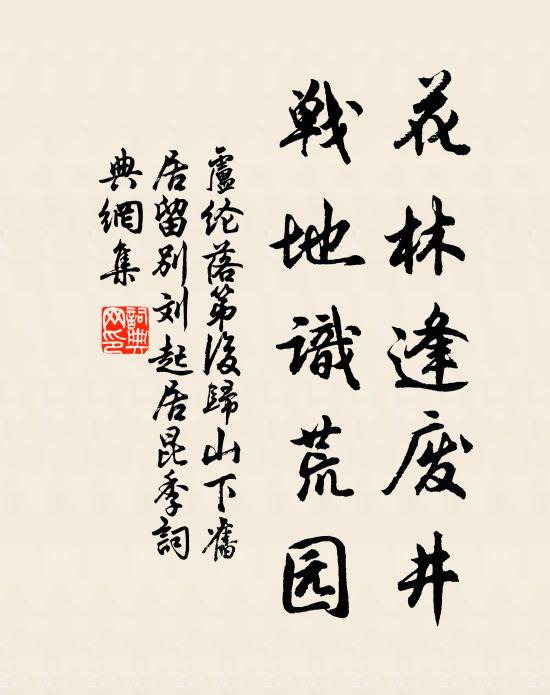 花林逢废井
戦地識荒园
盧纶落第後歸山下舊
居留別刘起居昆季詞
典網集
詞典网印